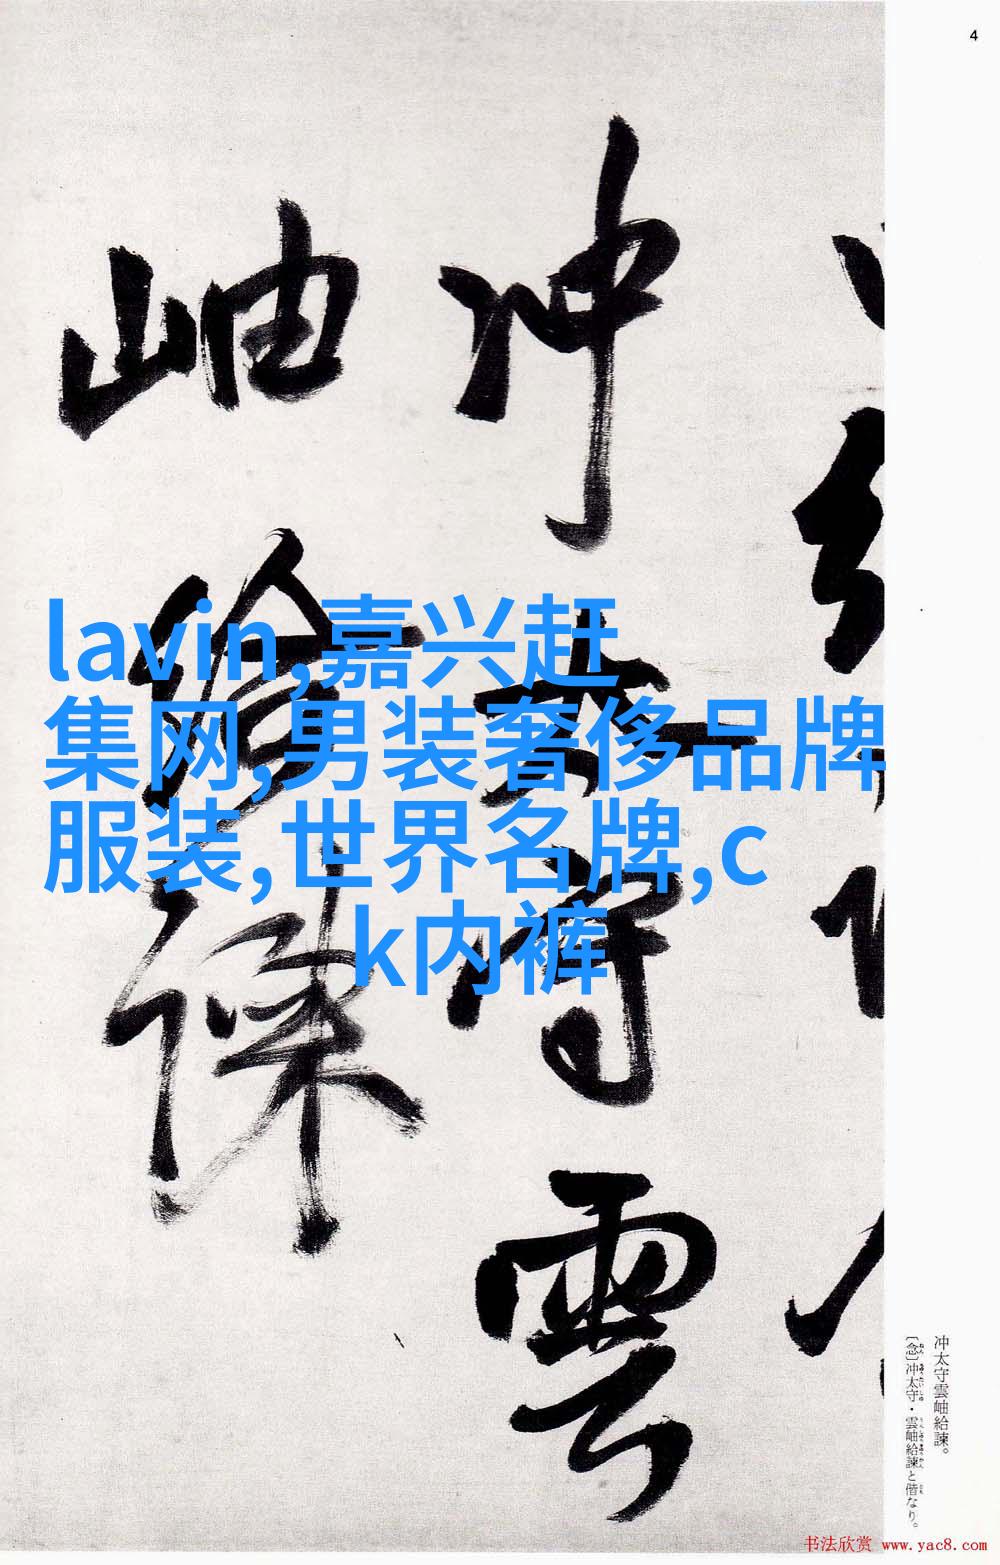 4
冲太守雲
岫給諫
lavin,嘉兴赶
集网,男装奢侈品牌
服装,世界名牌,c
k内裤
冲太守雲岫給諫。
〔念〕冲太守・雲岫給諫と偕なり。
书法欣赏 www.yac8.com